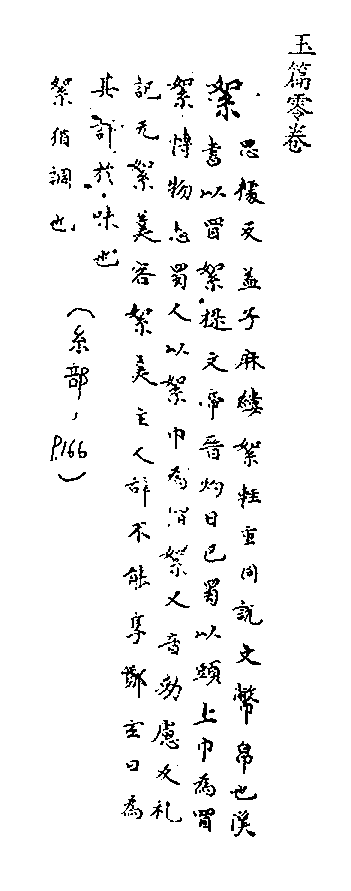 玉篇零卷
絮 思據反孟子麻縷絮輕重同說文幣帛也漢
書以冒絮提文帝晉灼曰巴蜀以頭上巾為冒
絮博物志蜀人以絮巾為冒絮又音勑慮反礼
記无絮羹容絮羹主人辞不能享鄭玄曰為
其詳於味也
絮猶調也
(糸部,P.166)